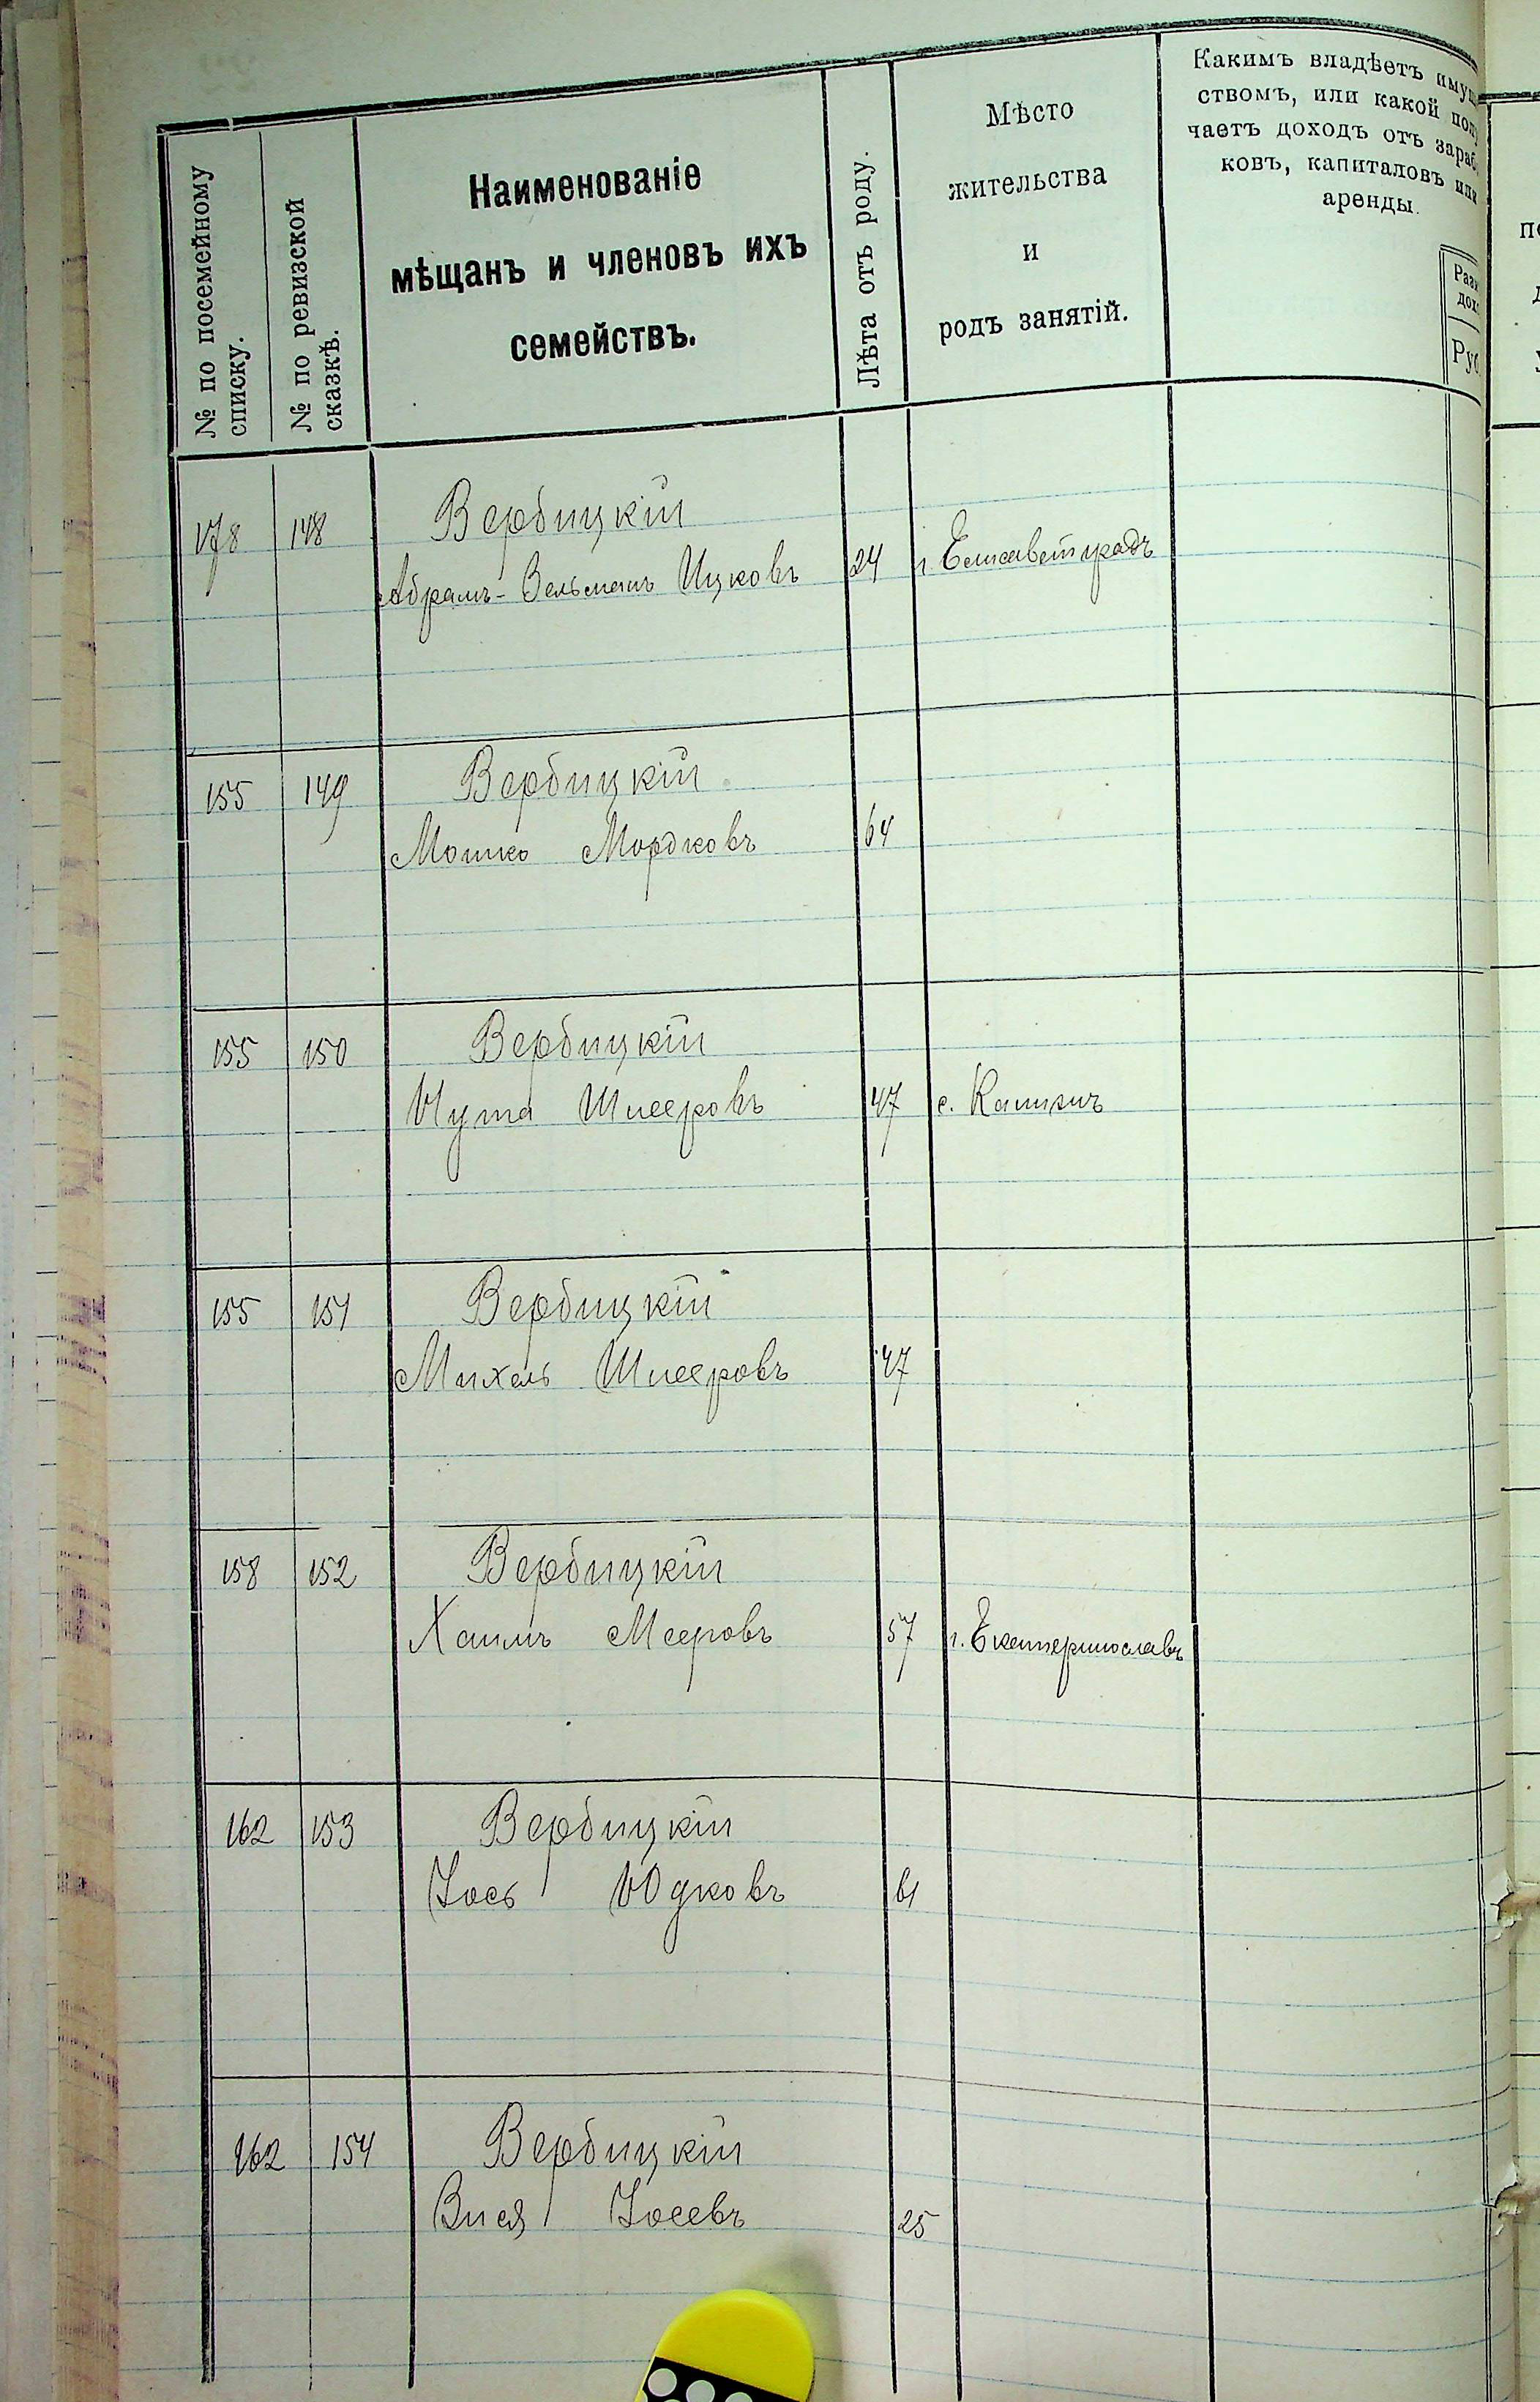 № по посемейному
списку.
№ по ревизской
сказкѣ.
Наименованіе
мѣщанъ и членовъ ихъ
семействъ.
Лѣта отъ роду.
Мѣсто
жительства
и
родъ занятій.
Какимъ владѣетъ имущ
ствомъ, или какой полу
чаетъ доходъ отъ зараб
ковъ, капиталовъ или
аренды.
Разм
дох
Руб
178 148 Вербицкій
Абрамъ-Зельманъ Ицковъ 24 г. Елисаветградъ
155 149 Вербицкій
Мошко Мордковъ 64
155 150 Вербицкій
Шмееровъ 47 с.
155 151 Вербицкій
Михель Шмееровъ 47
158 152 Вербицкій
Хаимъ Мееровъ 57 г. Екатеринославъ
162 153 Вербицкій
Іось Юдковъ 61
162 154 Вербицкій
Іосевъ 25